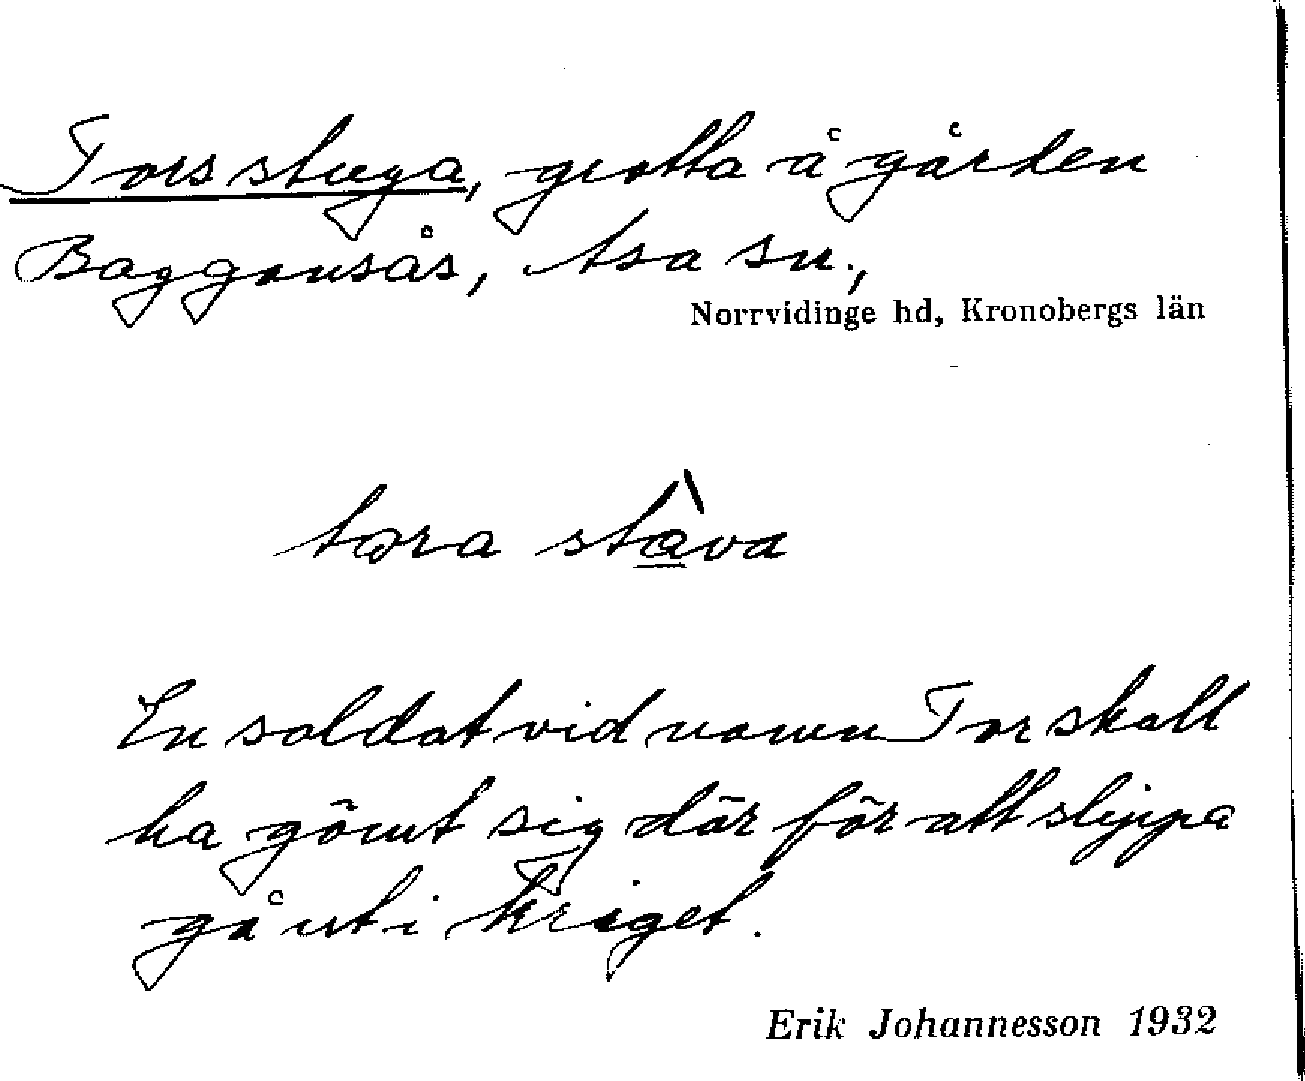 Tors stuga, grotta å gården
Baggansås, Asa sn.,
Norrvidinge hd, Kronobergs län
tora stava
En soldat vid namn Tor skall
ha gömt sig där för att slippa
gå ut i kriget.
Erik Johannesson 1932